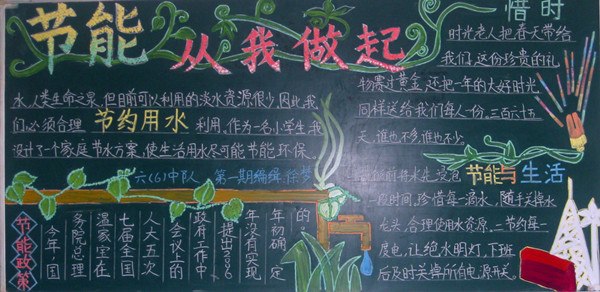 节能
从我做起
惜时
水,人类生命之泉,但目前可以利用的淡水资源很少,因此,我
们必须合理 节约用水 利用。作为一名小学生,我
设计了一个家庭节水方案,使生活用水尽可能节能、环保。
六(6)中队 第一期编辑:徐梦
时光老人把春天带给
我们,这份珍贵的礼
物贵过黄金,还把一年的大好时光
同样送给我们每人一份。三百六十五
天,谁也不多,谁也不少。
节能与生活
前将水先浸泡
一段时间,珍惜每一滴水,随手关掉水
龙头,合理使用水资源,二节约每一
度电,让绝水明灯,下班
后及时关掉所有电源开关。
节能政策
今年,国
务院总理
温家宝在
七届全国
人大五次
会议上的
政府工作中
提出2006
年没有实现
年初确定
的。